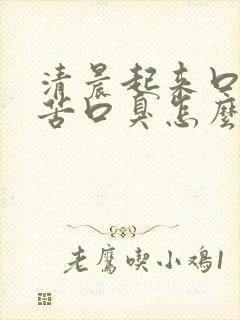 清晨起来口
苦口臭怎麼
老鷹喫小鸡1